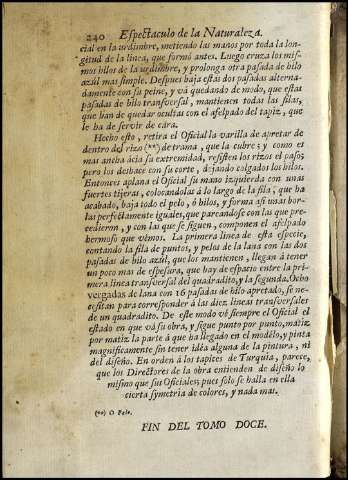 240 Espectaculo de la Naturaleza.
cial en la urdimbre, metiendo las manos por toda la lon-
gitud de la linea, que formó antes. Luego cruza los mis-
mos hilos de la urdimbre, y prolonga otra pasada de hilo
azúl mas simple. Despues baja estas dos pasadas alternada-
damente con su peine, y vá quedando de modo, que estas
pasadas de hilo transversal, mantienen todas las filas,
que han de quedar ocultas con el afelpado del tapiz, que
le ha de servir de cára.
Hecho esto, retira el Oficial la varilla de apretar de
dentro del rizo (**) de trama, que la cubre; y como es
mas ancha ácia su extremidad, resisten los rizos el paso;
pero los deshace con su corte, dejando colgados los hilos.
Entonces aplana el Oficial su mano izquierda con unas
fuertes tijeras, colocandolas á lo largo de la fila, que ha
acabado, baja todo el pelo, ó hilos, y forma asi unas bor-
las perfectamente iguales, que pareandose con las que pre-
cedieron, y con las que se siguen, componen el afelpado
hermoso que vémos. La primera linea de esta especie,
contando la fila de puntos, y pelos de la lana con las dos
pasadas de hilo azúl, que los mantienen, llegan á tener
un poco mas de espesura, que hay de espacio entre la pri-
mera linea transversal del quadradito, y la segunda. Ocho
vergadas de lana con 16 pasadas de hilo apretado, se ne-
cesitan para corresponder á las diez lineas transversales
de un quadradito. De este modo vé siempre el Oficial el
estado en que vá su obra, y sigue punto por punto, matiz
por matiz la parte á que ha llegado en el modélo, y pinta
magnificamente sin tener idéa alguna de la pintura, ni
del diseño. En orden á los tapices de Turquia, parece,
que los Directores de la obra entienden de diseño lo
mismo que sus Oficiales; pues solo se halla en ella
cierta symetria de colores, y nada mas.
(**) O Pelo.
FIN DEL TOMO DOCE.